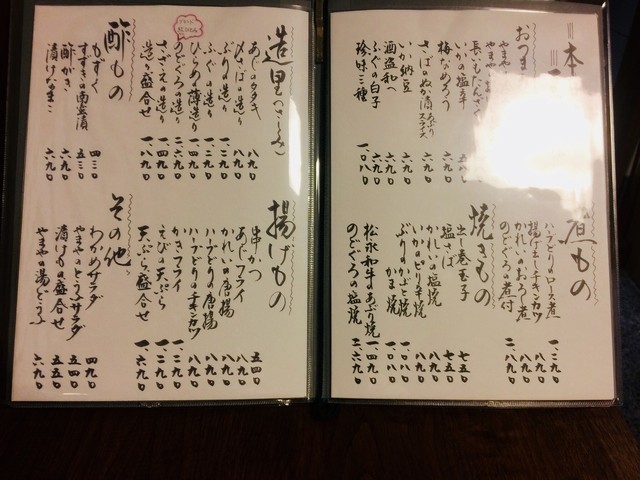 本
おつま
長いもたんざく
いかの塩辛
梅なめろう 六九〇
さばのぬか漬 あぶり スライス 六九〇
いか納豆 六九〇
酒盗和へ 六九〇
ふぐの白子
珍味三種 一、〇八〇
煮もの
ハーブどりのロース煮 一、三九〇
揚げ出しチキンカツ
かれいのおろし煮 八九〇
のどぐろの煮付 二、八九〇
焼きもの
出し巻玉子 七五〇
塩さば 七五〇
かれいの塩焼 八九〇
いかのピリ辛焼 八九〇
ぶりのかぶと焼 一、〇八〇
かま焼 一、〇八〇
松永和牛のあぶり焼 一、四九〇
のどぐろの塩焼 二、六九〇
造里(さしみ)
あじのタタキ 八九〇
〆さばの造り 八九〇
ぶりの造り 一、三九〇
ふぐの造り 一、三九〇
ひらめの薄造り 一、二九〇
のどぐろの造り 二、四九〇
さざえの造り 一、四九〇
造り盛合せ 一、八九〇
酢もの
もずく 四三〇
すずきの南蛮漬 五三〇
酢がき 六九〇
漬けなまこ 六九〇
揚げもの
串かつ 五四〇
あじフライ 八九〇
かれいの唐揚 八九〇
ハーブどりの唐揚 八九〇
ハーブどりのチキンカツ 八九〇
かきフライ 一、三九〇
えびの天ぷら 一、三九〇
天ぷら盛合せ 一、六九〇
その他
わかめサラダ 四九〇
やまやのとうふサラダ 五四〇
漬けもの盛合せ 五五〇
やまやの湯どうふ 六九〇